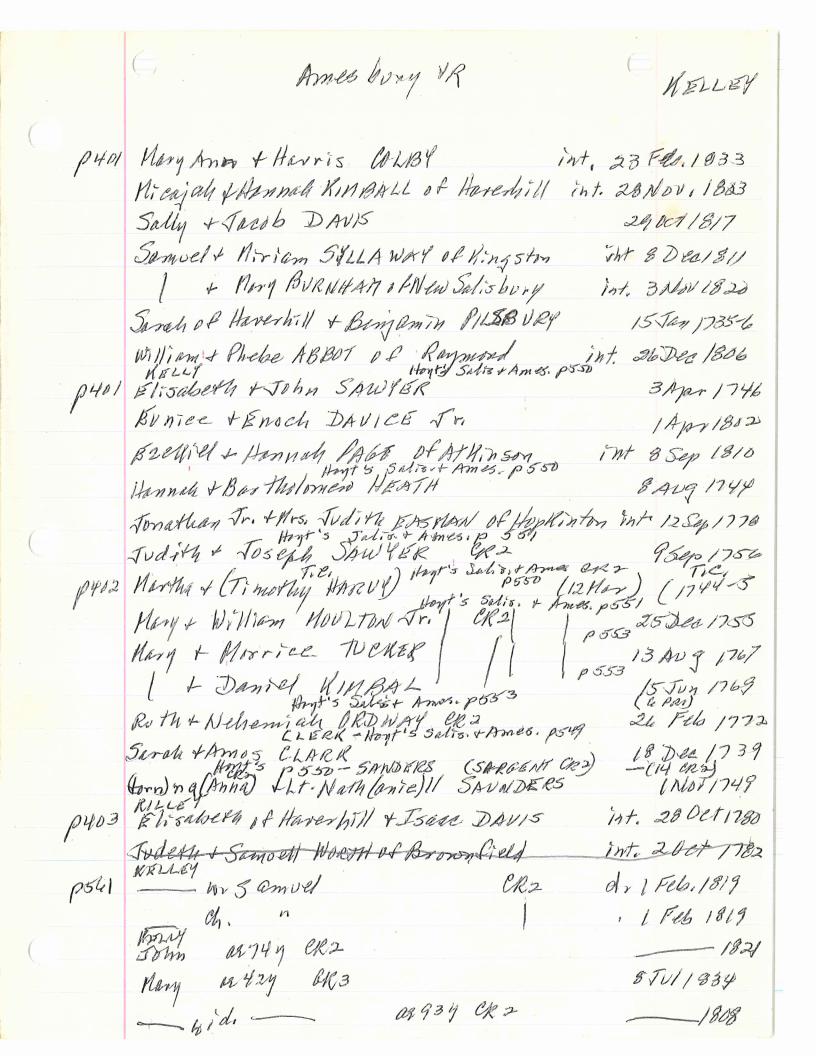 Amesbury VR
KELLEY
p401 Mary Ann + Harris COLBY int. 23 Feb. 1833
Micajah + Hannah KIMBALL of Haverhill int. 28 Nov. 1883
Sally + Jacob DAVIS 29 Oct 1817
Samuel + Miriam SYLLAWAY of Kingston int 8 Dec 1811
| + Mary BURNHAM of New Salisbury int. 3 Nov 1820
Sarah of Haverhill + Benjamin PILSBURY 15 Jan 1735-6
William + Phebe ABBOT of Raymond int. 26 Dec 1806
KELLY Hoyt's Salis + Ames. p550
p401 Elisabeth + John SAWYER 3 Apr 1746
Eunice + Enoch DAVICE Jr. 1 Apr 1802
Ezekiel + Hannah PAGE of Atkinson int 8 Sep 1810
Hoyt's Salis. + Ames. p550
Hannah + Bartholomew HEATH 8 Aug 1744
Jonathan Jr. + Mrs. Judith EASMAN of Hopkinton int 12 Sep 1770
Hoyt's Salis. + Ames. p 551
Judith + Joseph SAWYER CR2 9 Sep 1756
T.C. Hoyt's Salis. + Ames CR2 T.C.
p402 Martha + (Timothy HARVY) p550 (12 Mar) (1744-5
Hoyt's Salis. + Ames. p551
Mary + William MOULTON Jr. | CR2 | 25 Dec 1755
p553
Mary + Morrice TUCKER 13 Aug 1767
p553
| + Daniel KIMBAL 15 Jun 1769
Hoyt's Salis + Ames. p553 (6 PR1)
Ruth + Nehemiah ORDWAY CR2 26 Feb 1772
CLERK - Hoyt's Salis. + Ames. p549
Sarah + Amos CLARK 18 Dec 1739
Hoyt's CR2 p550 - SANDERS (SARGENT CR2) — (14 CR2)
(torn) na (Anna) + Lt. Nath(anie)ll SAUNDERS 1 Nov 1749
RILLEY
p403 Elisabeth of Haverhill + Isaac DAVIS int. 28 Oct 1780
Judeth + Samoell WORTH of Brownfield int. 2 Oct 1782
KELLEY
p561 — w Samuel CR2 d. 1 Feb. 1819
Ch. " | . 1 Feb 1819
KELLY
John ae 74y CR2 — 1821
Mary ae 42y GR3 8 Jul 1834
— wid. — ae 93y CR2 — 1808